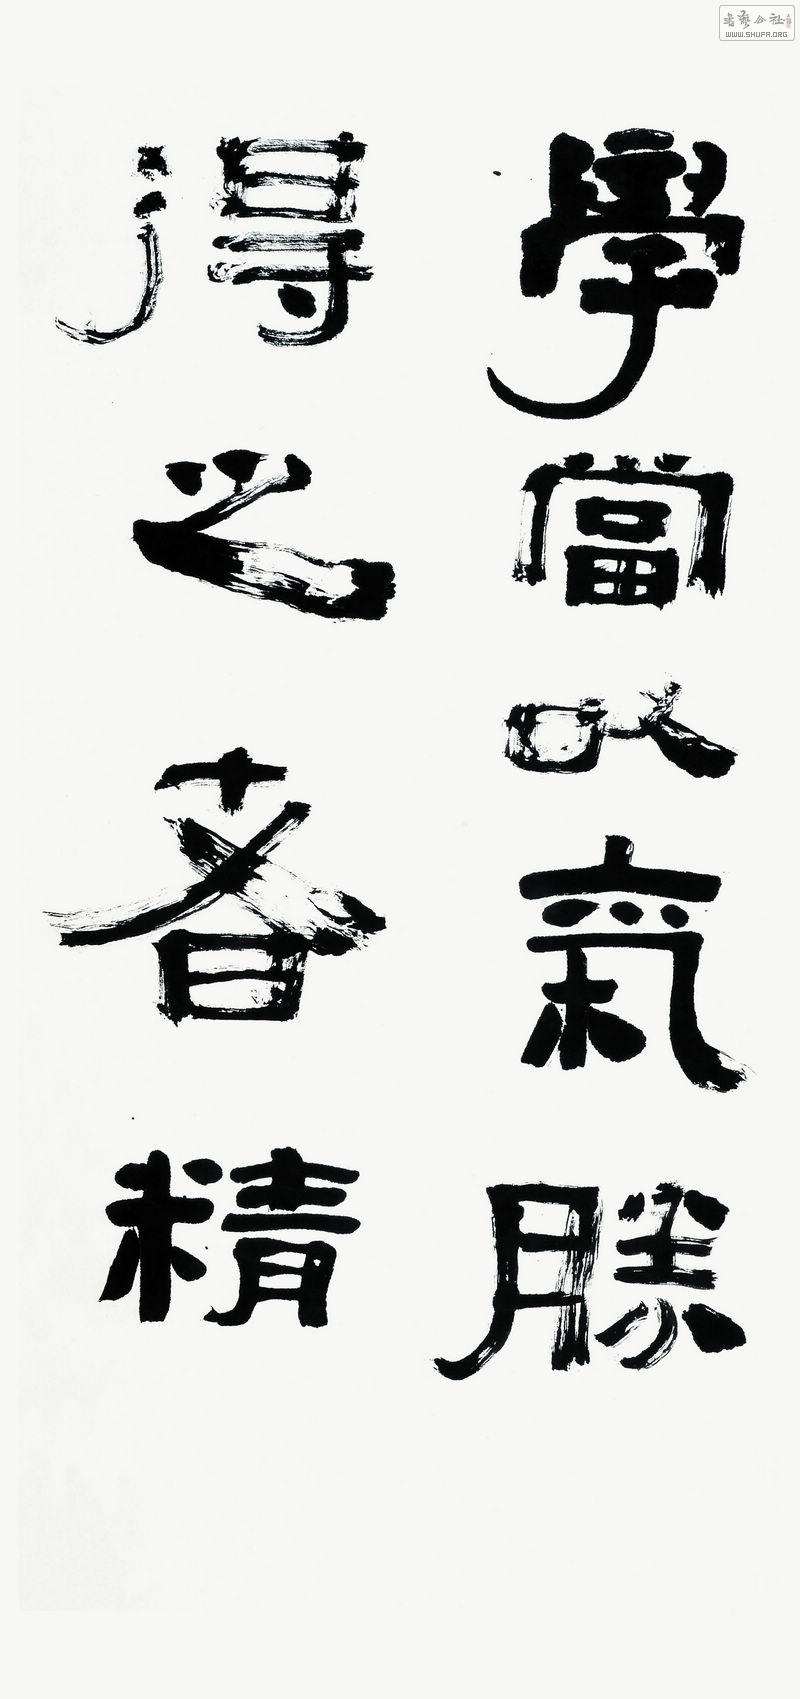 學當以氣勝
得之者精
書藝公社
WWW.SHUFA.ORG